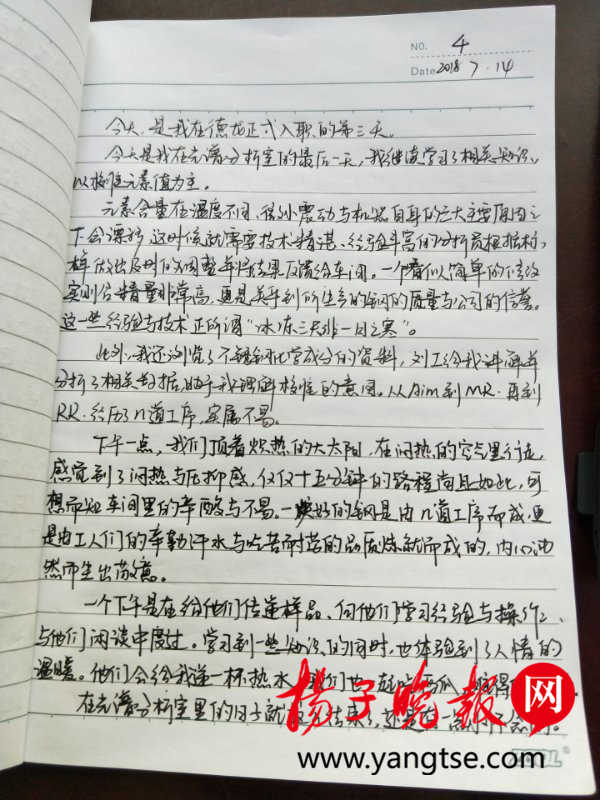 NO. 4
Date 2018 7.14
今天,是我在德龙正式入职的第三天。
今天是我在光谱分析室的最后一天,我继续学习了相关知识,
以校准元素值为主。
元素含量在温度不同、很小震动与机器自身的三大主要原因之
下会漂移,这时候就需要技术精湛、经验丰富的分析员根据标
样做出及时的调整并将结果反馈给车间。一个看似简单的修改
实则含精量非常高,更是关乎到所生产的钢的质量与公司的信誉。
这一些经验与技术正所谓“冰冻三天非一日之寒”。
此外,我还浏览了不锈钢化学成分的资料,刘工给我讲解并
分析了相关数据,助于我理解校准的意图。从Aim到MR.再到
RR.经历几道工序,实属不易。
下午一点,我们顶着炽热的大太阳,在闷热的空气里行走,
感觉到了闷热与压抑感,仅仅十五分钟的路程尚且如此,可
想而知车间里的辛酸与不易。一块好的钢是由几道工序而成,更
是由工人们的辛勤汗水与吃苦耐劳的品质炼就而成的,内心油
然而生出敬意。
一个下午是在给他们传递样品、向他们学习经验与操作、
与他们闲谈中度过。学习到一些知识的同时,也体验到了人情的
温暖。他们会给我递一杯热水,
在光谱分析室里的日子就 结束了,还是
扬子晚报网
www.yangtse.com